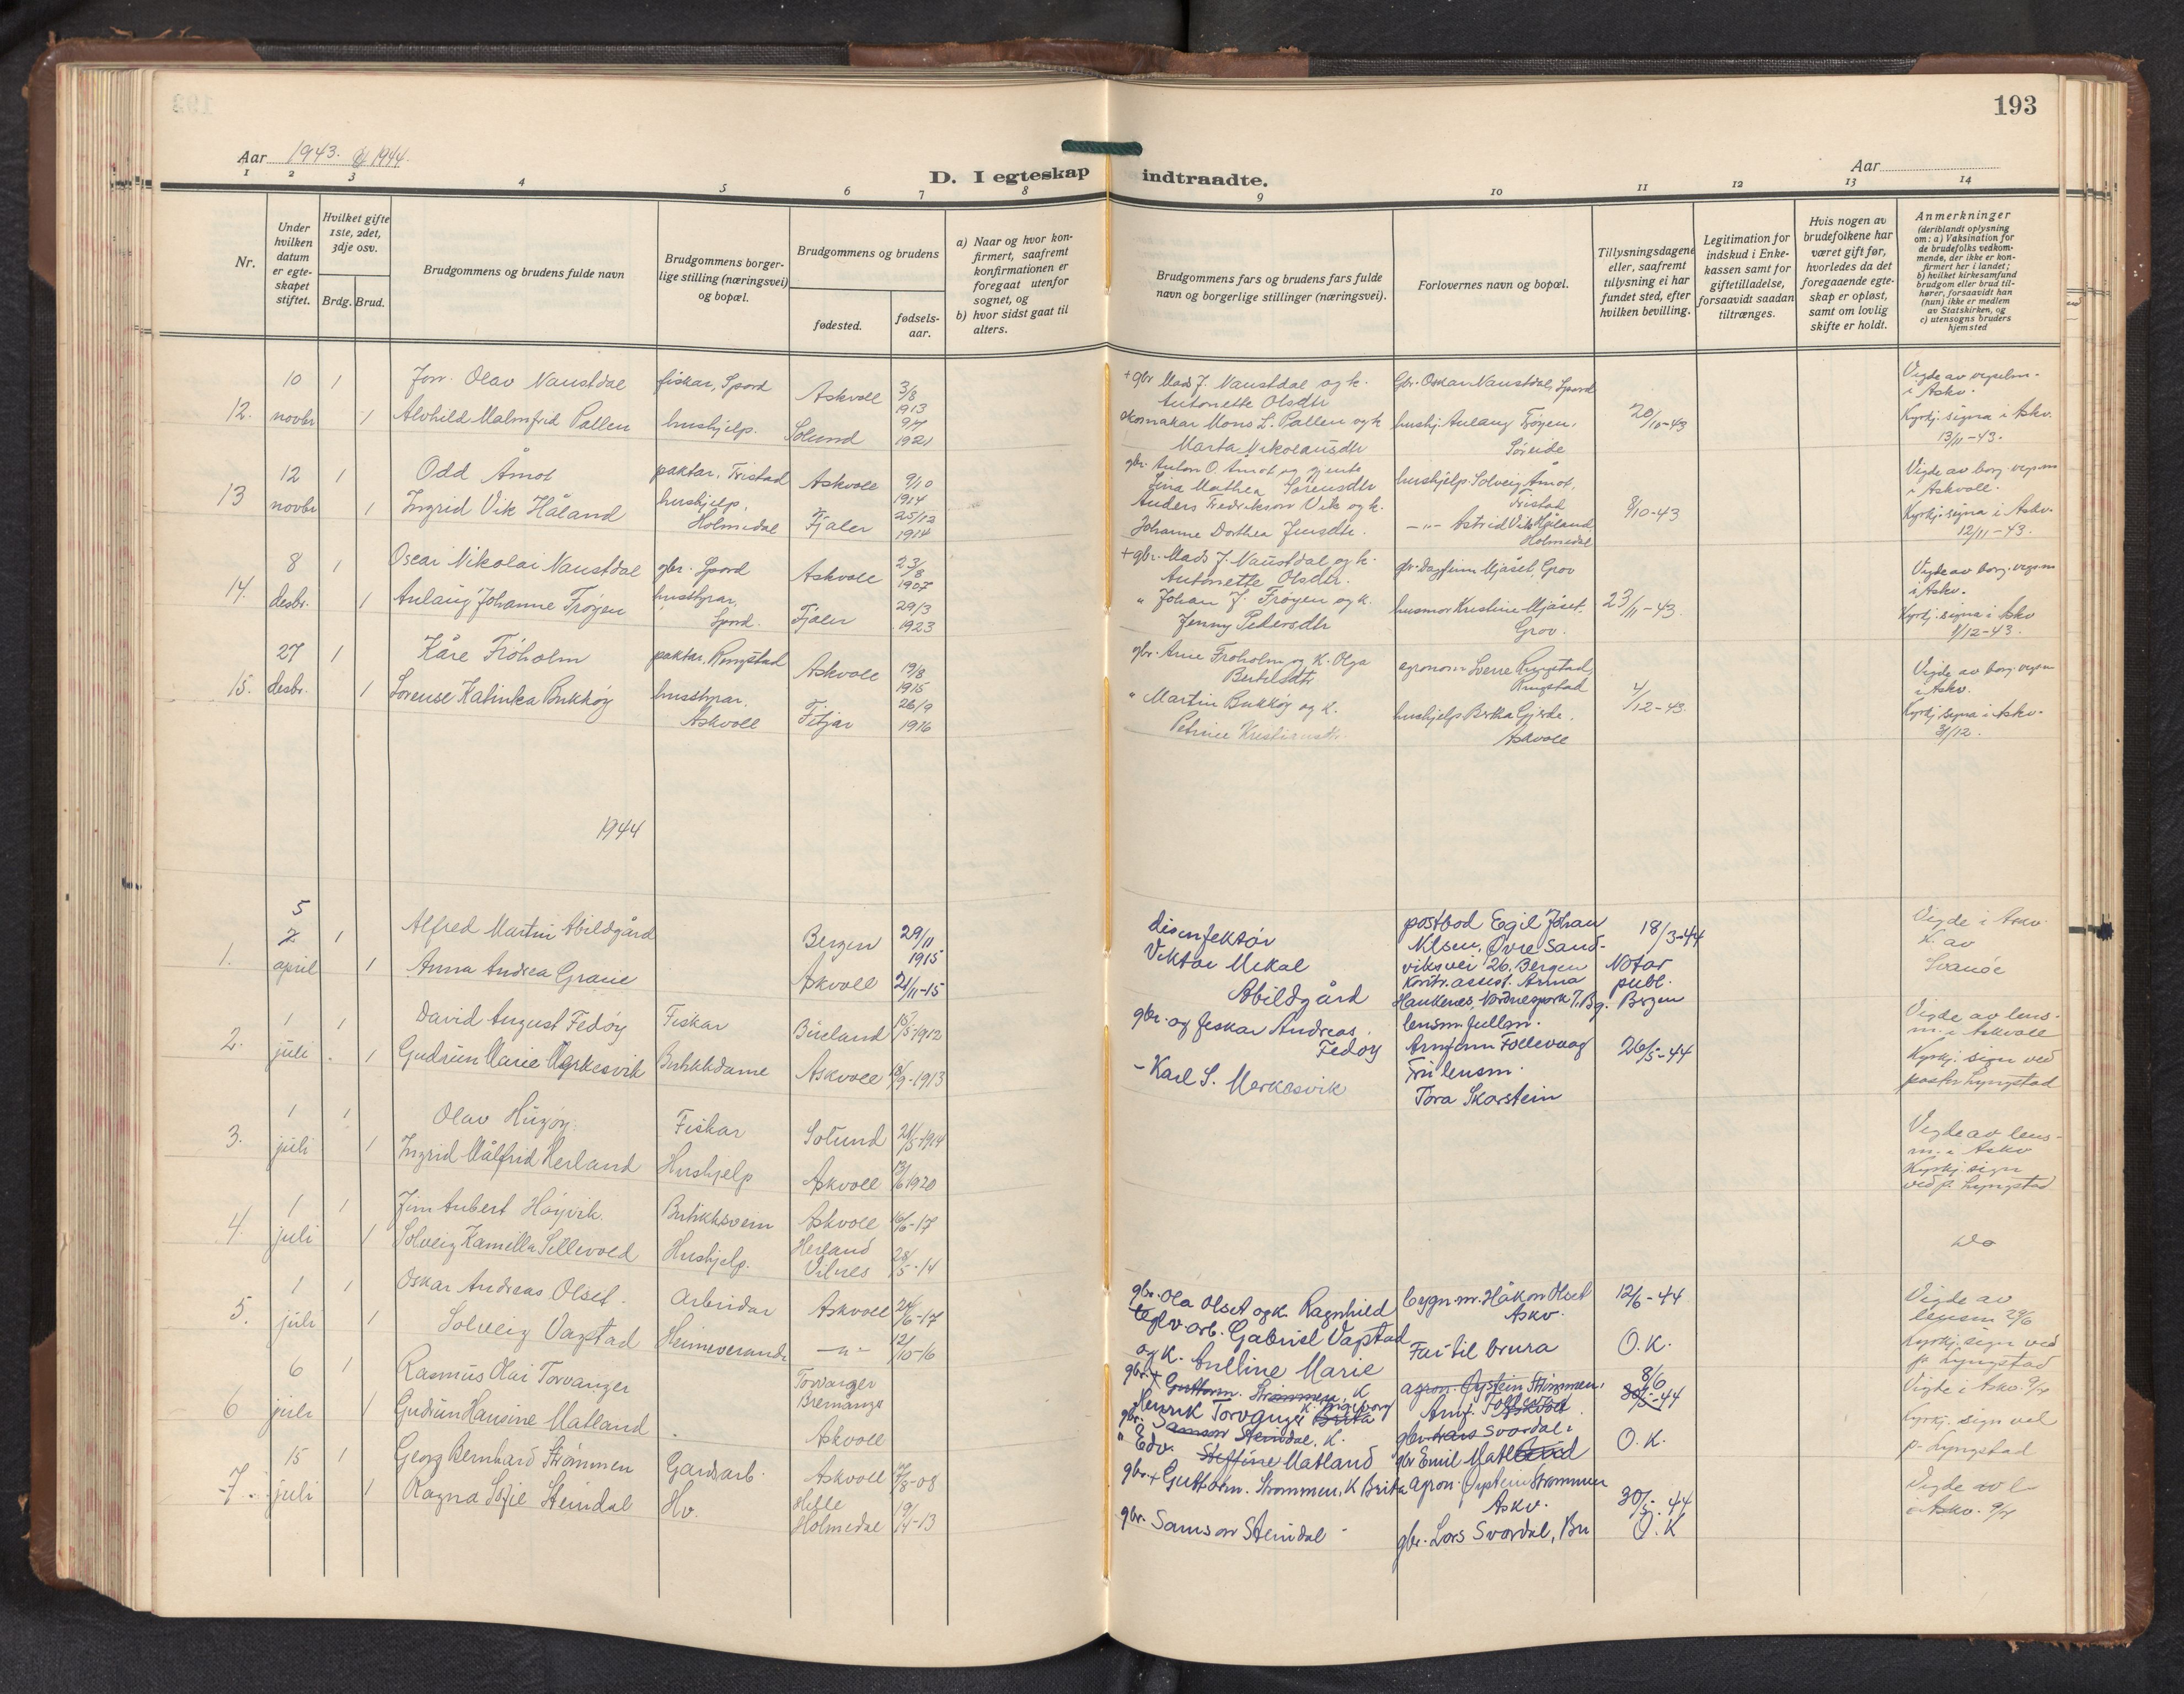 193
Aar 1943. og 1944.
Aar
D. I egteskap indtraadte.
1 2 3 4 5 6 7 8 9 10 11 12 13 14
Nr.
Under hvilken datum er egteskapet stiftet.
Hvilket gifte 1ste, 2det, 3dje osv.
Brdg. Brud.
Brudgommens og brudens fulde navn
Brudgommens borgerlige stilling (næringsvei) og bopæl.
Brudgommens og brudens
fødested.
fødselsaar.
a) Naar og hvor konfirmert, saafremt konfirmationen er foregaat utenfor sognet, og
b) hvor sidst gaat til alters.
Brudgommens fars og brudens fars fulde navn og borgerlige stillinger (næringsvei).
Forlovernes navn og bopæl.
Tillysningsdagene eller, saafremt tillysning ei har fundet sted, efter hvilken bevilling.
Legitimation for indskud i Enkekassen samt for giftetilladelse, forsaavidt saadan tiltrænges.
Hvis nogen av brudefolkene har været gift før, hvorledes da det foregaaende egteskap er opløst, samt om lovlig skifte er holdt.
Anmerkninger
(deriblandt oplysning om: a) Vaksination for de brudefolks vedkommende, der ikke er konfirmert her i landet; b) hvilket kirkesamfund brudgom eller brud tilhører, forsaavidt han (hun) ikke er medlem av Statskirken, og c) utensogns bruders hjemsted
12. 10 novbr 1
Olav Naustdal fiskar, Spord Askvoll 3/8 1913
+ gbr Mads J. Naustdal og k. Antonette Olsdtr
Gbr. Oskar Naustdal, Spord
1 Alvhild Malmfrid Pallen hushjelp. Solund 1921
Mons L. Pallen og k Marta Nikolausdtr
hushj. Anlaug Frøyen,
20/10-43
i Askv.
Kyrkj. signa i Askv. 13/11-43.
13 12 novbr 1
Odd Åmot paktar, Tristad Askvoll 9/10 1914
gbr. Anton O. Åmot og
Lina Mathea Sørensdtr
hushjelp Solveig Åmot, Tristad
1 Ingrid Vik Håland hushjelp, Holmedal Fjaler 25/12 1914
Anders Fredrikson Vik og k. Johanne Dorthea Jensdtr.
-"- Astrid Vik Håland Holmedal
8/10-43
Vigde av borg. i Askvoll.
Kyrkj. signa i Askv. 12/11-43.
14. 8 desbr. 1
Oscar Nikolai Naustdal gbr. Spord Askvoll 23/8 1907
+ gbr. Mads J. Naustdal og k. Antonette Olsdtr.
gbr. Dagfinn Mjåset, Grov
1 Anlaug Johanne Frøyen husstyrar, Spord. Fjaler 29/3 1923
" Johan J. Frøyen og k. Jenny Pedersdtr
husmor Kristine Mjåset. Grov.
23/11-43.
Vigde av borg. i Askv.
Kyrkj. signa i Askv
15. 27 desbr. 1
Kåre Frøholm paktar, Ringstad Askvoll 19/8 1915
gbr. Arne Frøholm og k. Olga Bertelsdtr
agronom Sverre Ringstad, Ringstad
1 Sørense Katinka Bukkøy husstyrar. Askvoll Fitjar 26/9 1916
" Martin Bukkøy og k. Petrine Kristiansdtr.
hushjelp Berta Gjerde. Askvoll
4/12-43.
Vigde av borg. i Askv.
Kyrkj. signa i Askv. 31/12.
1944
1. 5 april 1
Alfred Martin Abildgård Bergen 29/11 1915
disinfektør Viktor Mikal Abildgård
postbod Egil Johan Nilsen, Øvre Sandviksvei 26, Bergen
18/3-44 Notar publ. Bergen
Vigde i Askv. k. av Svanøe
1 Anna Andrea Askvoll 21/11-15
Kontr. assist. Anna Haukenes, Nordnesgaten 7. Bg.
2. 1 juli 1
David August Fedøy Fiskar Bueland 1912
gbr. og fiskar Andreas Fedøy
lensm. fullm. Arnfinn Follevaag
1 Gudrun Marie Merkesvik Butikkdame Askvoll 1913
- Karl S. Merkesvik
Fru lensm. Tora Skarstein
26/5-44
Vigde av lensm. i Askvoll
Kyrkj. sign ved pastor Lyngstad
3. 1 juli 1
Olav Fiskar Solund 21/5-1914
1 Ingrid Målfrid Herland Hushjelp Askvoll 13/6 1920
Vigde av lensm. i Askv
Kyrkj. sign ved p. Lyngstad
4. 1 juli 1
Høyvik. Butikksvein Askvoll 16/6-17
1 Solveig Kamilla Sellevold Hushjelp. Herland Vilnes 28/5-14
do
5. 1 juli 1
Oskar Andreas Olset. Arbeidar Askvoll 24/6-17
gbr. Ola Olset og k. Ragnhild
bygn.m. Håkon Olset Askv.
12/6-44
1 Solveig Vagstad Heimeverande -"- 12/10-16
teglv. arb. Gabriel Vagstad og k. Marie
Far til brura
O.K.
Vigde av lensm 29/6
Kyrkj. sign ved p. Lyngstad
6 6 juli 1
Rasmus Olai Torvanger Torvanger Bremanger
gbr. + Guttorm. Strømmen, K
Henrik Torvanger K. Ingeborg Brita
agron. Øystein Strømmen,
Arnf.
8/6
30/5-44
1 Gudrun Hansine Matland Askvoll
gbr. Samson Steindal, K.
" Edv. Steffine Matland
gbr. Lars Svardal,
gbr Emil Matland
O.K.
Vigde i Askv.
Kyrkj. sign ved p. Lyngstad
7. 15 juli 1
Georg Bernhard Strømmen Gardsarb. Askvoll
gbr. + Guttorm. Strømmen, K Brita
agron. Øystein Strømmen Askv.
30/5-44
1 Ragna Sofie Steindal Hv. Helle Holmedal 19/4-13
gbr. Samson Steindal
gbr. Lars Svardal, Bu
O.K
Vigde av l i Askv.